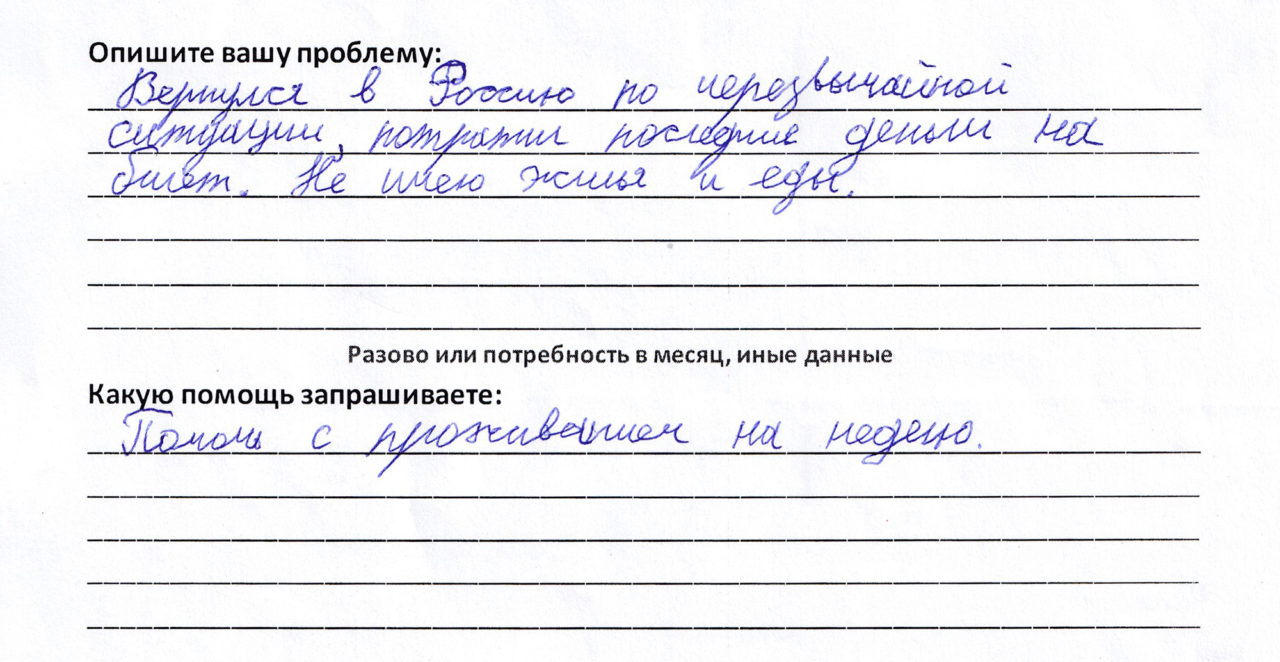 Опишите вашу проблему:
Вернулся в Россию по черезвычайной
ситуации, потратил последние деньги на
билет. Не имею жилья и еды.
Разово или потребность в месяц, иные данные
Какую помощь запрашиваете:
Помочь с проживанием на неделю.